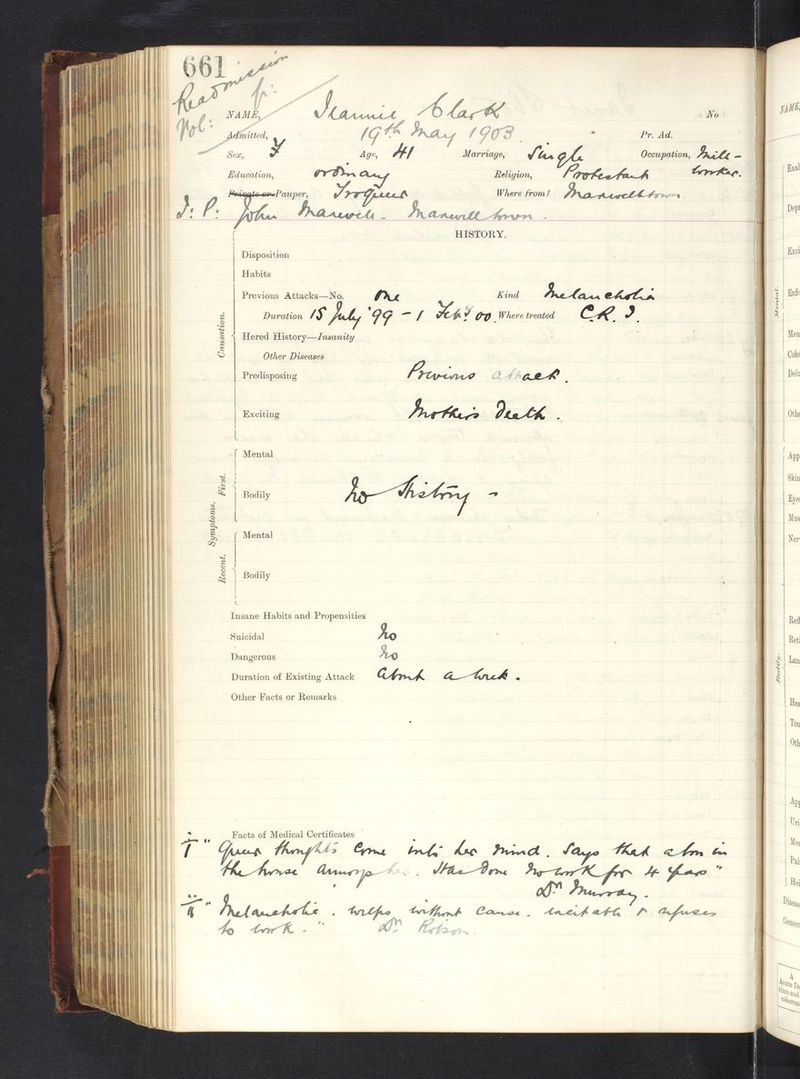 661
Readmission
Vol: p:
NAME, Jeannie Clark No
Admitted, 19th May 1903 Pr. Ad.
Sex, F Age, 41 Marriage, Single Occupation, Mill-
Education, ordinary Religion, Protestant worker.
Private or Pauper, Troqueer Where from? Maxwelltown
I: P: John Maxwell. Maxwelltown.
HISTORY.
Causation.
Disposition
Habits
Previous Attacks—No. one Kind Melancholia
Duration 15 July '99 - 1 Feby 00. Where treated C.R.I.
Hered History—Insanity
Other Diseases
Predisposing Previous attack.
Exciting Mother's Death.
Symptoms.
First.
Mental
Bodily No History -
Recent.
Mental
Bodily
Insane Habits and Propensities
Suicidal No
Dangerous No
Duration of Existing Attack About a week.
Other Facts or Remarks
Facts of Medical Certificates
i " Queer thoughts come into her mind. Says that a box in
the house annoys her. Has done no work for 4 years"
Dr Murray.
ii " Melancholic. weeps without cause. excitable & refuses
to work." Dr Robson.
NAME,
Mental.
Bodily.